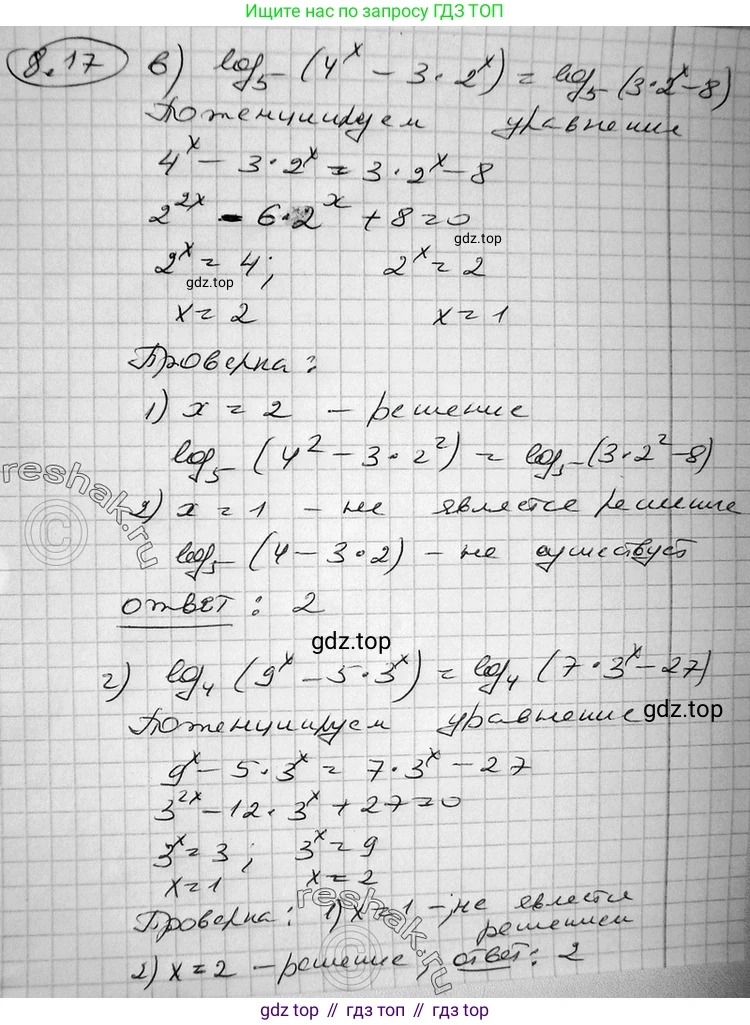 Больше решебников по запросу ГДЗ ТОП
8.17 в) log₅(4ˣ - 3·2ˣ) = log₅(3·2ˣ-8)
Потенциируем уравнение
4ˣ - 3·2ˣ = 3·2ˣ - 8
2²ˣ - 6·2ˣ + 8 = 0
gdz.top
2ˣ = 4; 2ˣ = 2
gdz.top
x = 2 x = 1
Проверка:
1) x = 2 - решение
log₅(4² - 3·2²) = log₅(3·2² - 8)
reshak.ru
2) x = 1 - не является решение
©
log₅(4 - 3·2) - не существует
ответ: 2
gdz.top
г) log₄(9ˣ - 5·3ˣ) = log₄(7·3ˣ - 27)
Потенциируем уравнение
gdz.top
9ˣ - 5·3ˣ = 7·3ˣ - 27
3²ˣ - 12·3ˣ + 27 = 0
3ˣ = 3; 3ˣ = 9
x = 1 x = 2
reshak.ru
©
Проверка: 1) x = 1 - не явлется
решением
2) x = 2 - решение, ответ: 2
gdz.top // гдз топ // gdz.top // гдз.топ